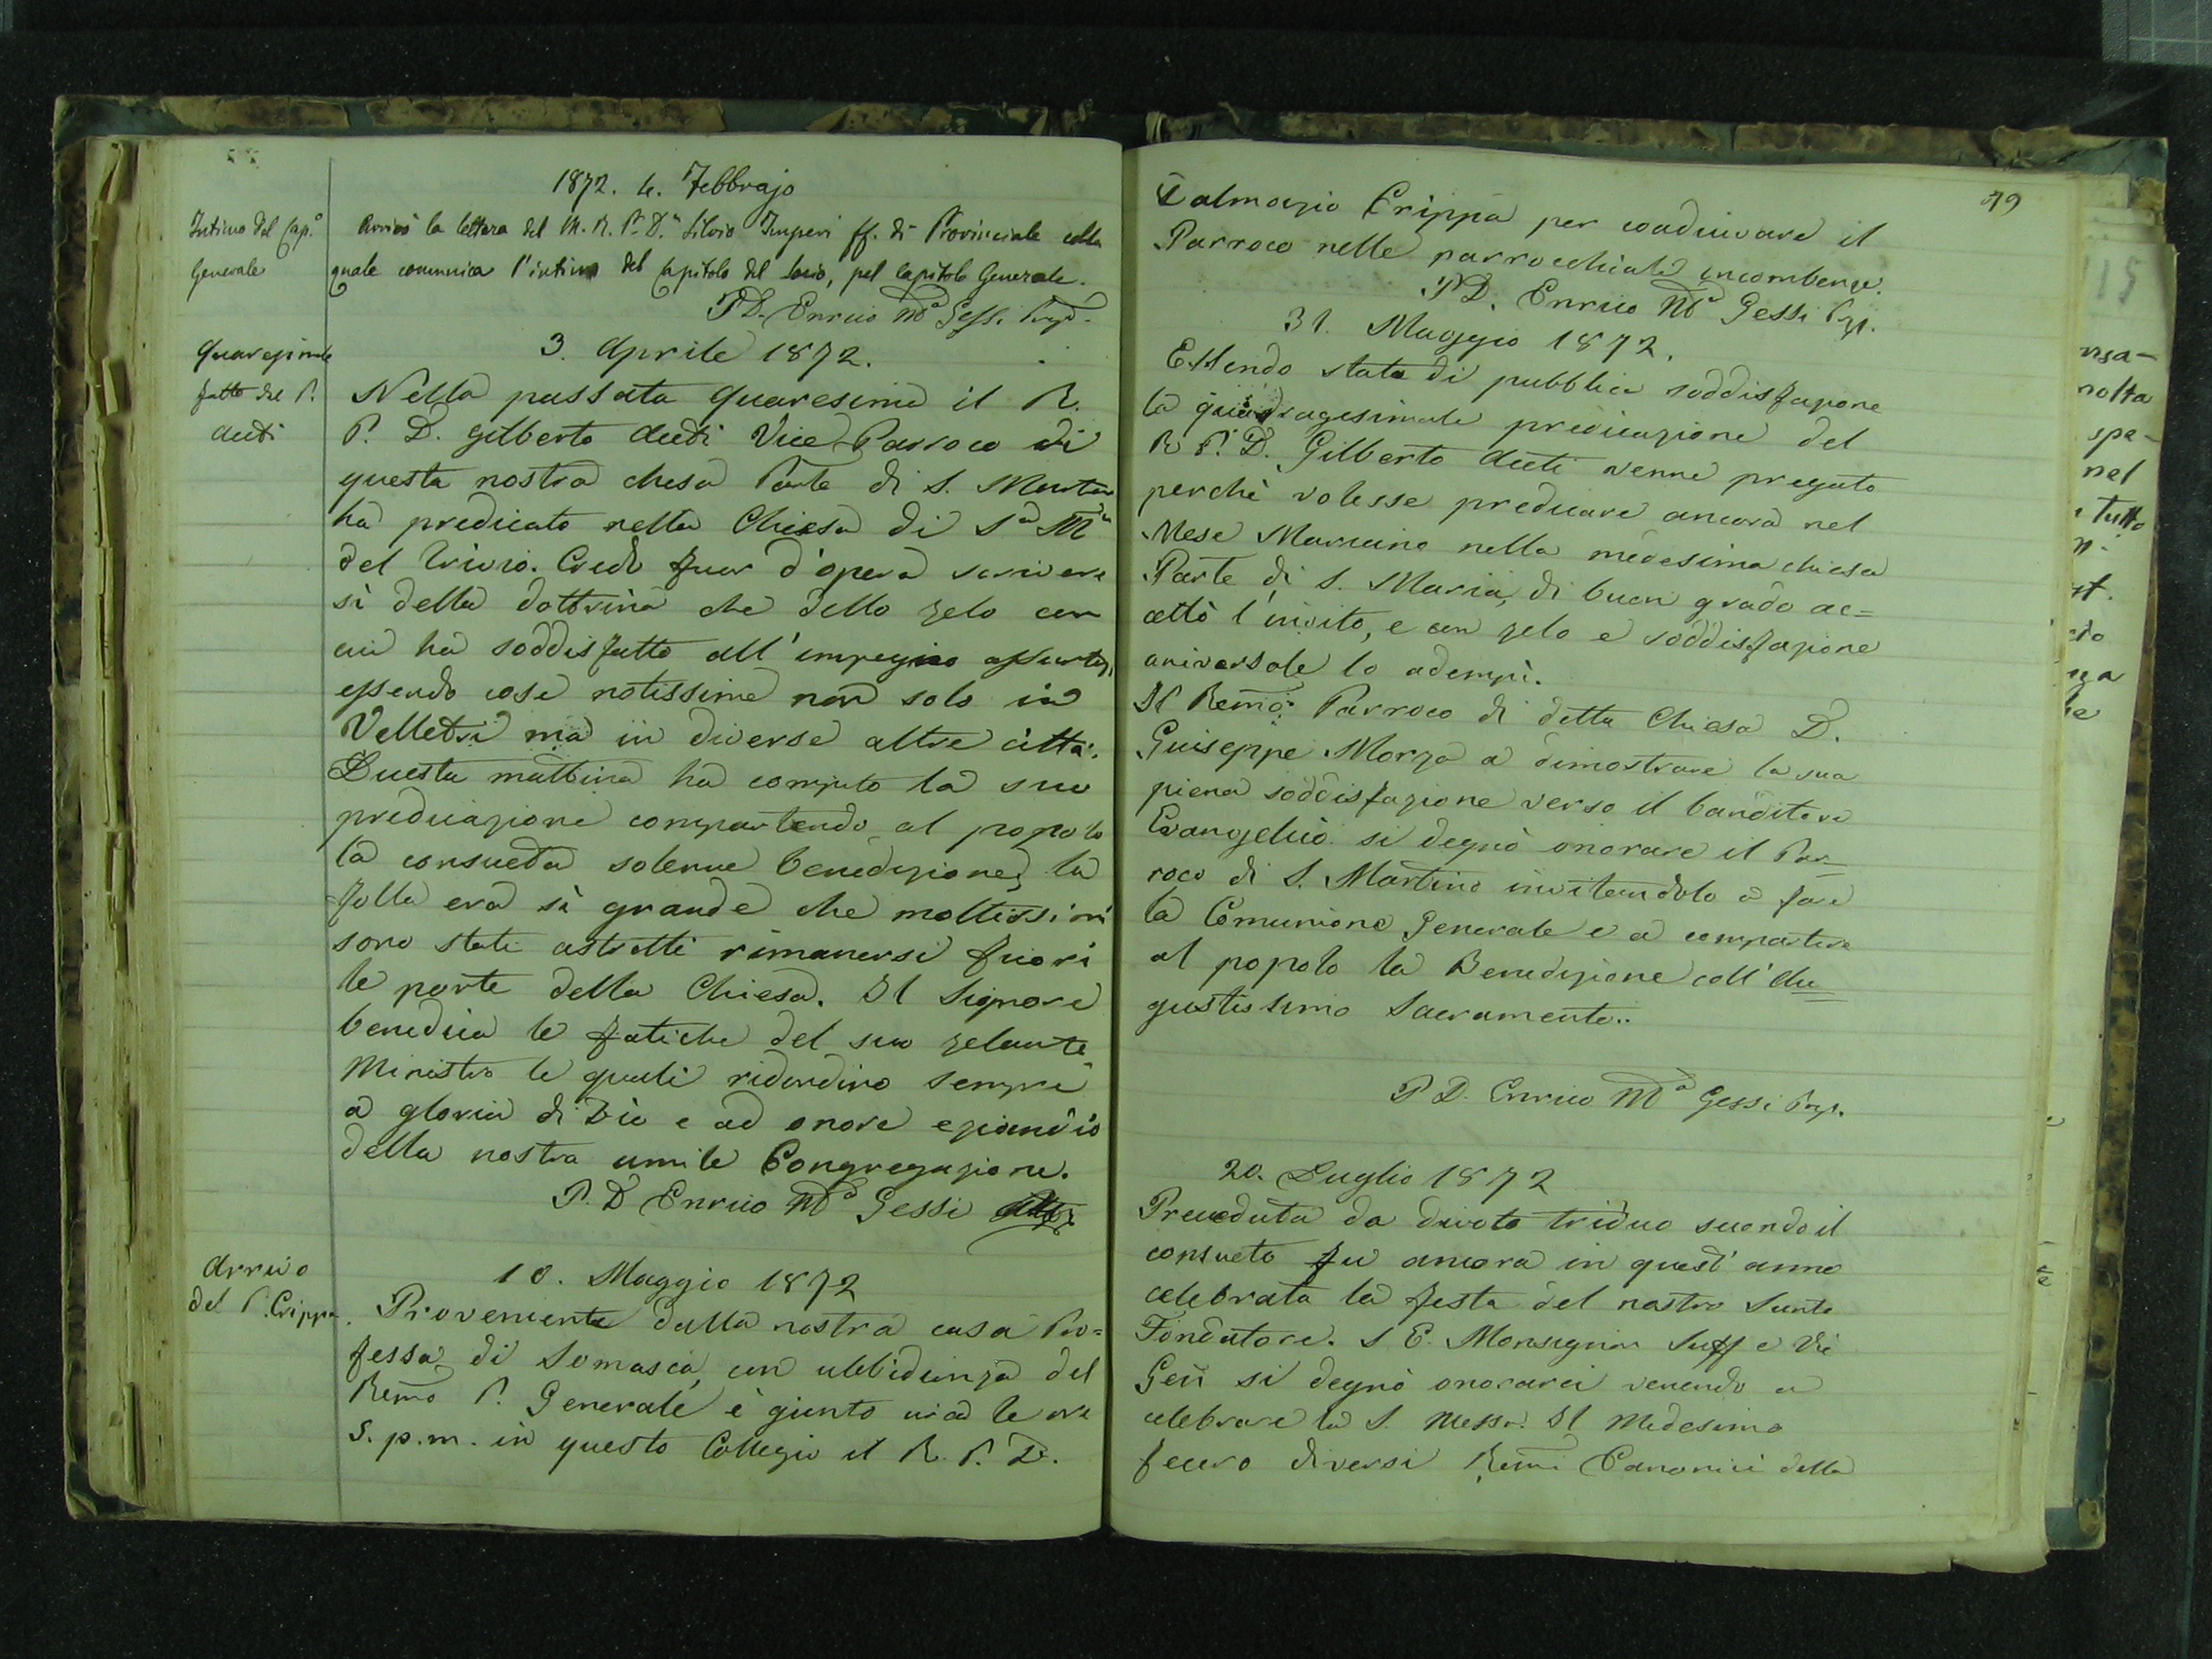 1872. 4. Febbrajo
Intimo del Cap.º
Generale
Arrivò la lettera del M. R. P. D.n Silvio Imperi ff. di Provinciale colla
quale comunica l'intimo del Capitolo del Socio, pel Capitolo Generale.
P D. Enrico Mª Gessi Prep.
3. Aprile 1872.
Quaresimale
fatto dal P.
Aceti
Nella passata Quaresima il R.
P. D. Gilberto Aceti Vice-Parroco di
questa nostra chiesa Parle di S. Martino
ha predicato nella Chiesa di Sª Mª
del Trivio. Credo fuor d'opera scrivere
sì della dottrina che dello zelo con
cui ha soddisfatto all'impegno assunto,
essendo cose notissime non solo in
Velletri ma in diverse altre città.
Questa mattina ha compito la sua
predicazione compartendo al popolo
la consueta solenne benedizione, la
folla era sì grande che moltissimi
sono stati astretti rimanersi fuori
le porte della Chiesa. Il Signore
benedica le fatiche del suo zelante
Ministro le quali ridondino sempre
a gloria di Dio e ad onore eziandio
della nostra umile Congregazione.
P. D Enrico Mª Gessi
Arrivo
del P. Crippa.
10. Maggio 1872
Proveniente dalla nostra casa Pro=
fessa di Somasca, con ubbidienza del
Remo P. Generale è giunto circa le ore
5. p.m. in questo Collegio il R. P. D.
79
Calmazio Crippa per coadiuvare il
Parroco nelle parrocchiali incombenze.
P D. Enrico Mª Gessi Prep.
31. Maggio 1872.
Essendo stata di pubblica soddisfazione
la quadragesimale predicazione del
R P. D. Gilberto Aceti venne pregato
perchè volesse predicare ancora nel
Mese Mariano nella medesima chiesa
Parle di S. Maria, di buon grado ac=
cettò l'invito, e con zelo e soddisfazione
universale lo adempì.
Il Remo Parroco di detta Chiesa D.
Guiseppe Morza a dimostrare la sua
piena soddisfazione verso il banditore
Evangelico si degnò onorare il Par
roco di S. Martino invitandolo a fare
la Comunione Generale e a compartire
al popolo la Benedizione coll'Au
gustissimo Sacramento..
P D. Enrico Mª Gessi Prep.
20. Luglio 1872
Preceduta da divoto triduo secondo il
consueto fu ancora in quest'anno
celebrata la festa del nostro Santo
Fondatore. S E. Monsignor Suff e Vic
Gen si degnò onorarci venendo a
celebrare la S. Messa. Il medesimo
fecero diversi Remi Canonici della